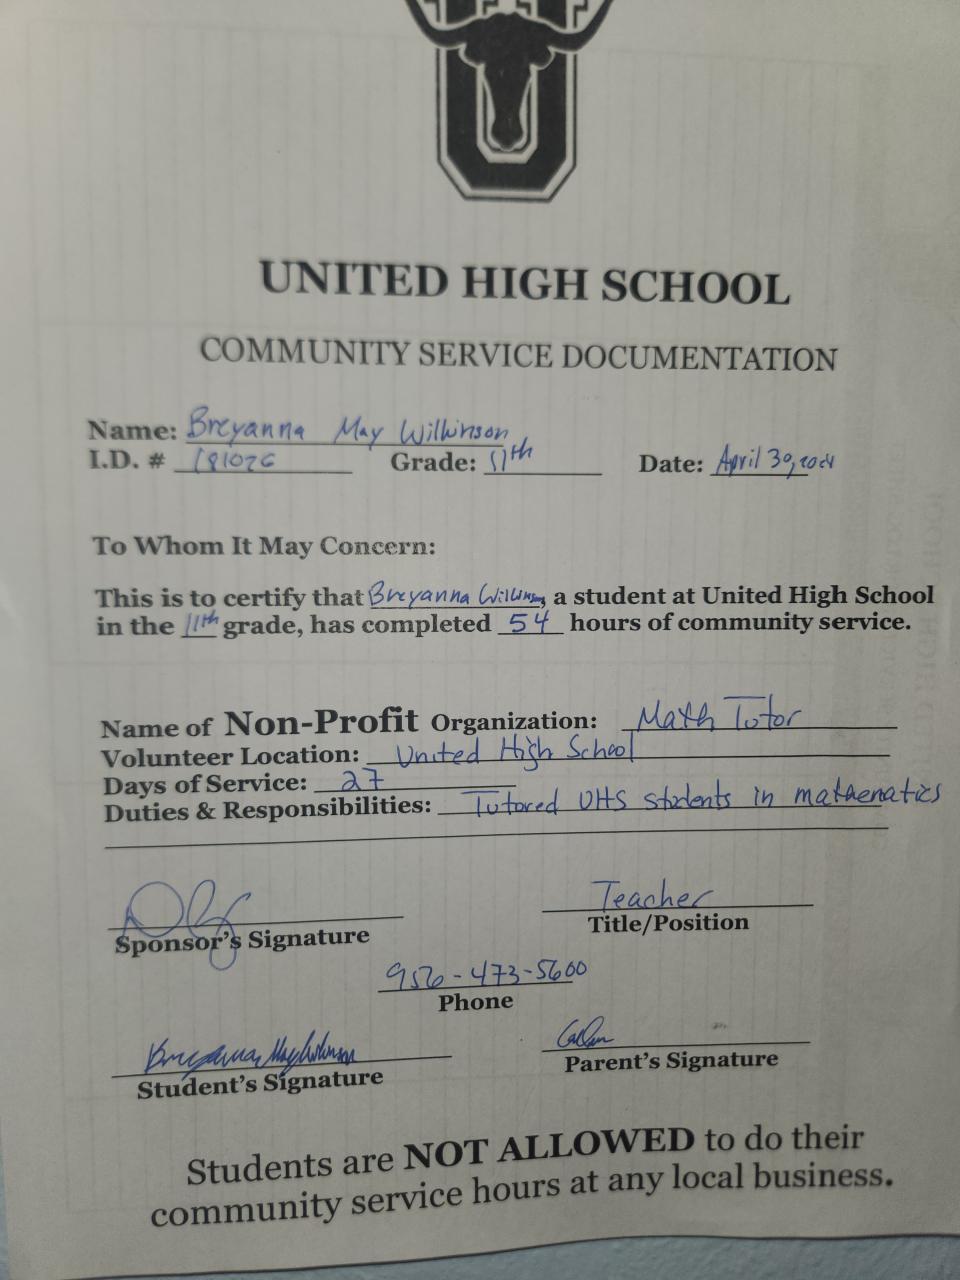 UNITED HIGH SCHOOL
COMMUNITY SERVICE DOCUMENTATION
Name: Breyanna May Wilkinson
I.D. # 181026 Grade: 11th Date: April 30, 2024
To Whom It May Concern:
This is to certify that Breyanna Wilkinson, a student at United High School
in the 11th grade, has completed 54 hours of community service.
Name of Non-Profit Organization: Math Tutor
Volunteer Location: United High School
Days of Service: 27
Duties & Responsibilities: Tutored UHS students in mathematics
Teacher
Sponsor's Signature Title/Position
956-473-5600
Phone
Breyanna May Wilkinson
Student's Signature Parent's Signature
Students are NOT ALLOWED to do their
community service hours at any local business.